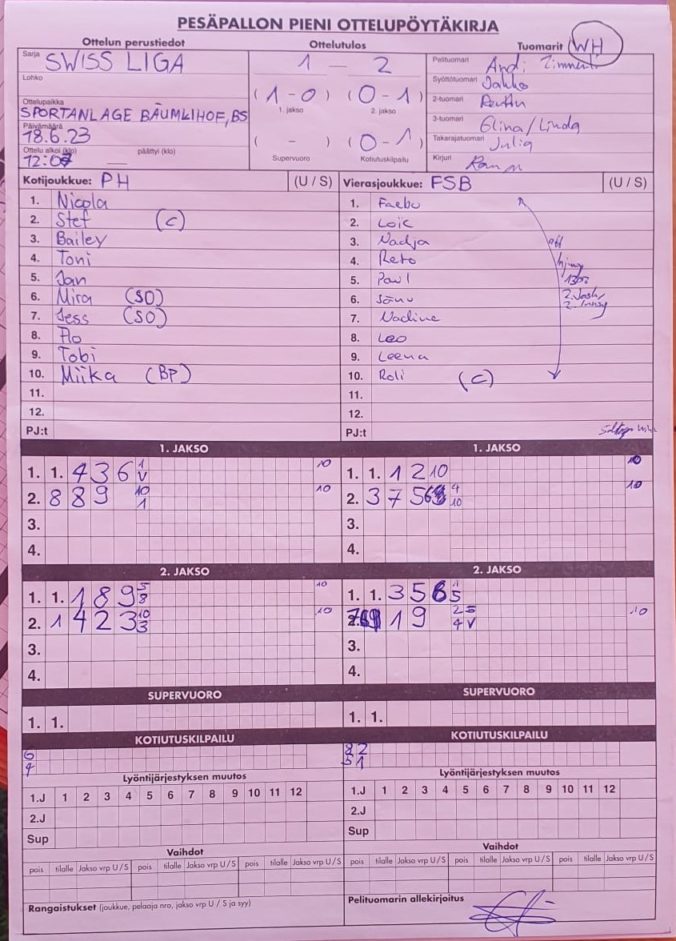 PESÄPALLON PIENI OTTELUPÖYTÄKIRJA
Ottelun perustiedot
Sarja SWISS LIGA
Lohko
Ottelupaikka
SPORTANLAGE BÄUMLIHOF, BS
Päivämäärä
18.6.23
Ottelu alkoi (klo) päättyi (klo)
Ottelutulos
1 – 2
(1-0) (0-1)
1. jakso 2. jakso
( - ) (0-1)
Supervuoro Kotiutuskilpailu
Tuomarit WH
Pelituomari
Syöttötuomari
2-tuomari
3-tuomari Elina/Linda
Takarajatuomari Julia
Kirjuri
Kotijoukkue: PH (U / S)
1. Nicola
2. Stef (C)
3. Bailey
4. Toni
5. Jan
6. Mira (SO)
7. Jess (SO)
8. Flo
9. Tobi
10. Miika (BP)
11.
12.
PJ:t
Vierasjoukkue: FSB (U / S)
1. Faebu
2. Loic
3. Nadja
4. Reto
5. Paul
6. Sämu
7. Nadine
8. Leo
9. Leena
10. Roli (C)
11.
12.
PJ:t
1. JAKSO
1. 1. 4 3 6 1 V 10
2. 8 8 9 10 1 10
3.
4.
1. JAKSO
1. 1. 1 2 10 10
2. 3 7 5 4 10 10
3.
4.
2. JAKSO
1. 1. 1 8 9 5 8 10
2. 1 4 2 3 10 3 10
3.
4.
2. JAKSO
1. 1. 3 5 6 1 5
1 9 2 5 4 V 10
3.
4.
SUPERVUORO
1. 1.
SUPERVUORO
1. 1.
KOTIUTUSKILPAILU
6
KOTIUTUSKILPAILU
2
5 1
Lyöntijärjestyksen muutos
1.J 1 2 3 4 5 6 7 8 9 10 11 12
2.J
Sup
Lyöntijärjestyksen muutos
1.J 1 2 3 4 5 6 7 8 9 10 11 12
2.J
Sup
Vaihdot
pois tilalle Jakso vrp U / S pois tilalle Jakso vrp U / S pois tilalle Jakso vrp U / S
Vaihdot
pois tilalle Jakso vrp U / S pois tilalle Jakso vrp U / S pois tilalle Jakso vrp U / S
Rangaistukset (joukkue, pelaaja nro, jakso vrp U / S ja syy)
Pelituomarin allekirjoitus